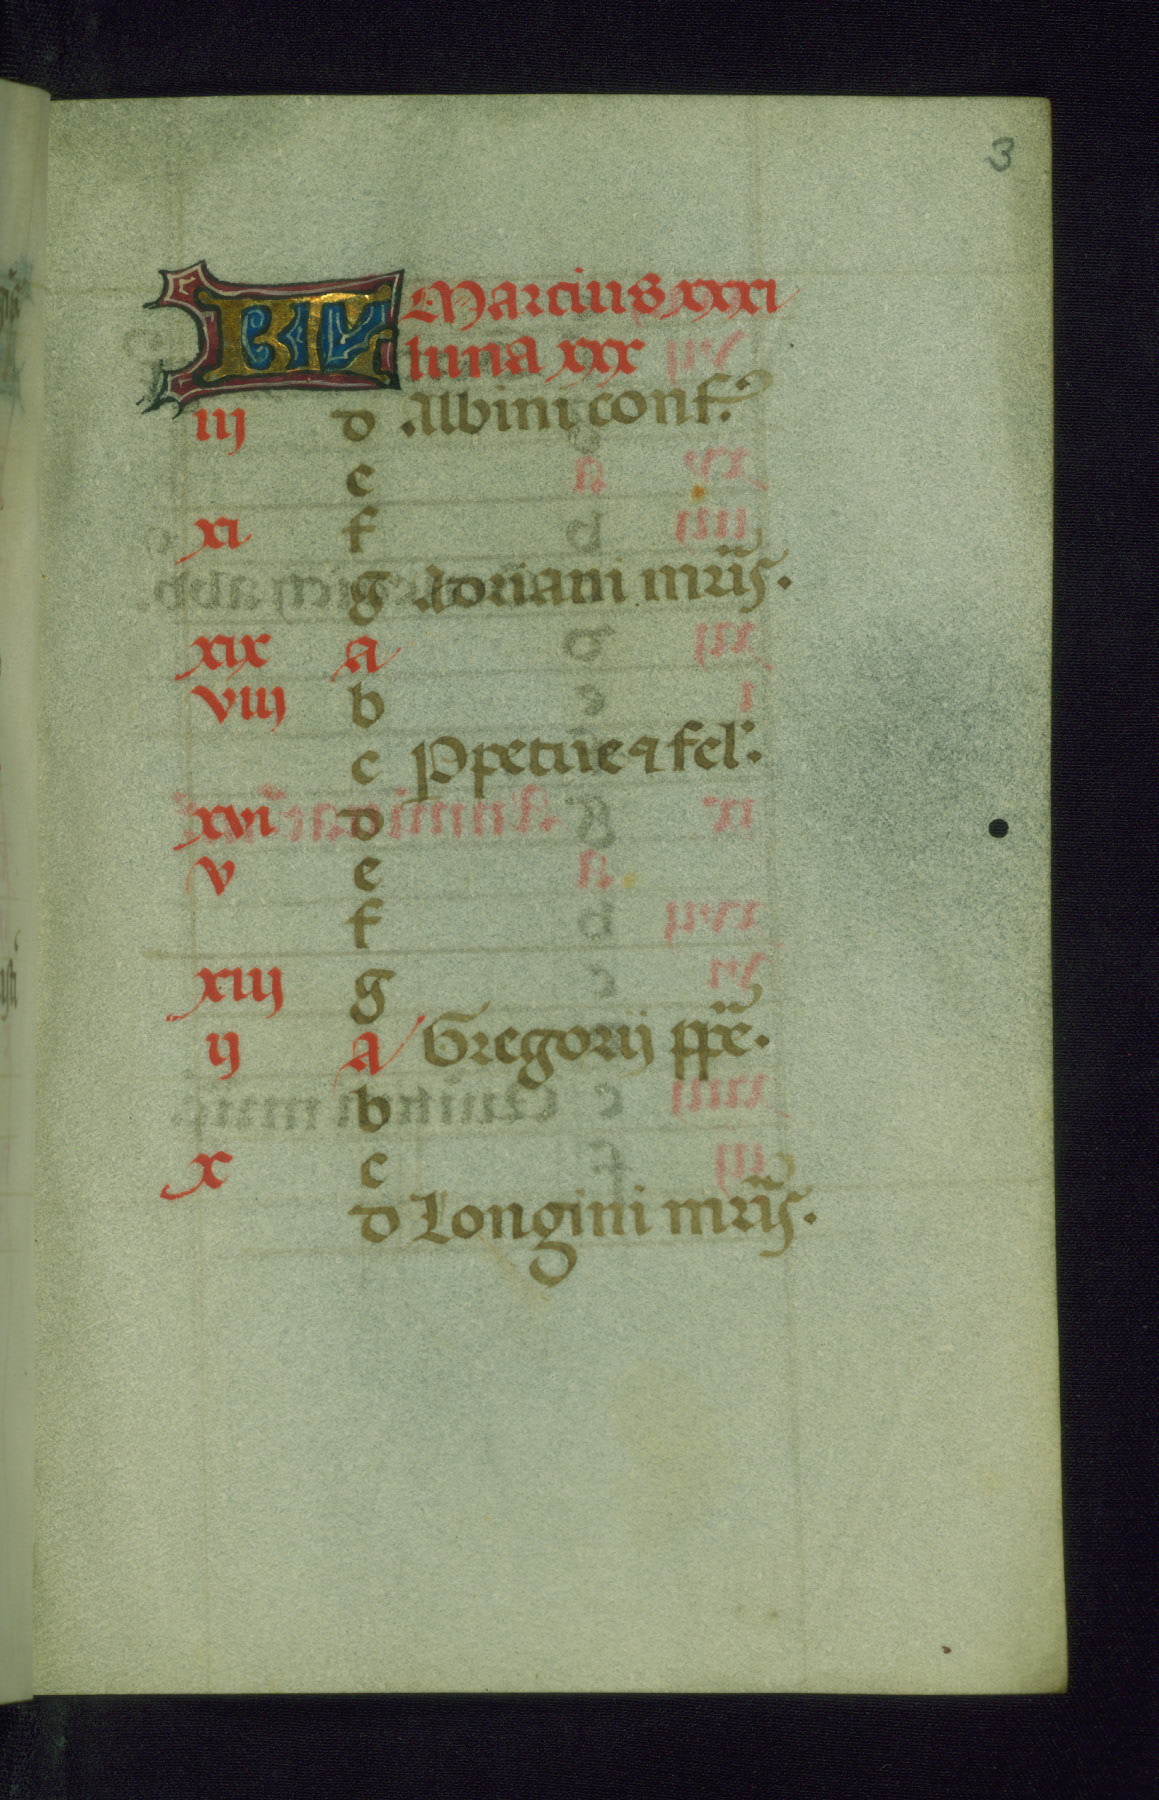 3
KL Marcius xxxi
luna xxx
iij d Albini conf.
e
xi f
g Adriani mris.
xix a
viij b
c Ppetue ⁊ fel.
xvi d
v e
f
xiij g
ij a Gregorij ppe.
b
x c
d Longini mris.